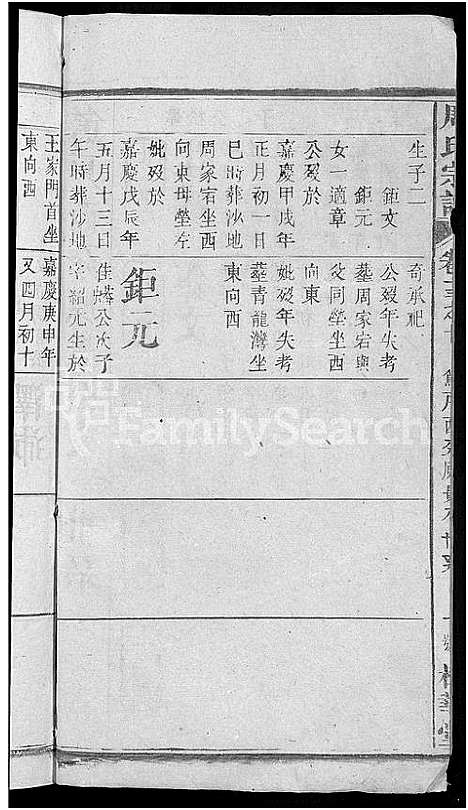 周氏宗譜
生子二
鉅文
鉅元
女一適章
公歿於
嘉慶甲戌年
正月初一日
巳時葬沙地
周家宕坐西
向東母塋左
妣歿於
嘉慶戊辰年
五月十三日
午時葬沙地
奇承祀
公歿年失考
葬周家宕與
父同塋坐西
向東
妣歿年失考
葬青龍灣坐
東向西
鉅元
佳麟公次子
字紹元生於
王家門首坐
東向西
嘉慶庚申年
又四月初十
FamilySearch